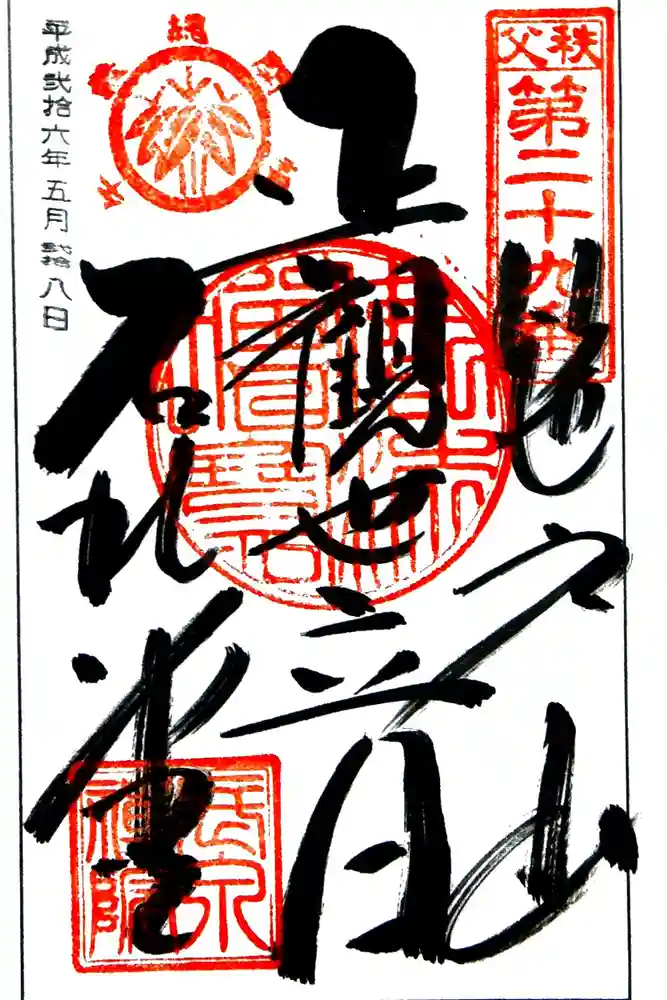 秩父
第二十九番
笹戸山
聖観世音
石札堂
長泉
禪院
平成弐拾六年五月弐拾八日